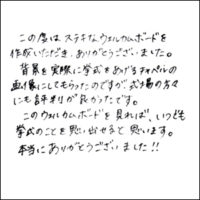 この度はステキなウェルカムボードを
作成いただき、ありがとうございました。
背景を実際に挙式をあげるチャペルの
画像にしてもらったのですが式場の方々
にも評判が良かったです。
このウェルカムボードを見れば、いつでも
挙式のことを思い出せると思います。
本当にありがとうございました!!